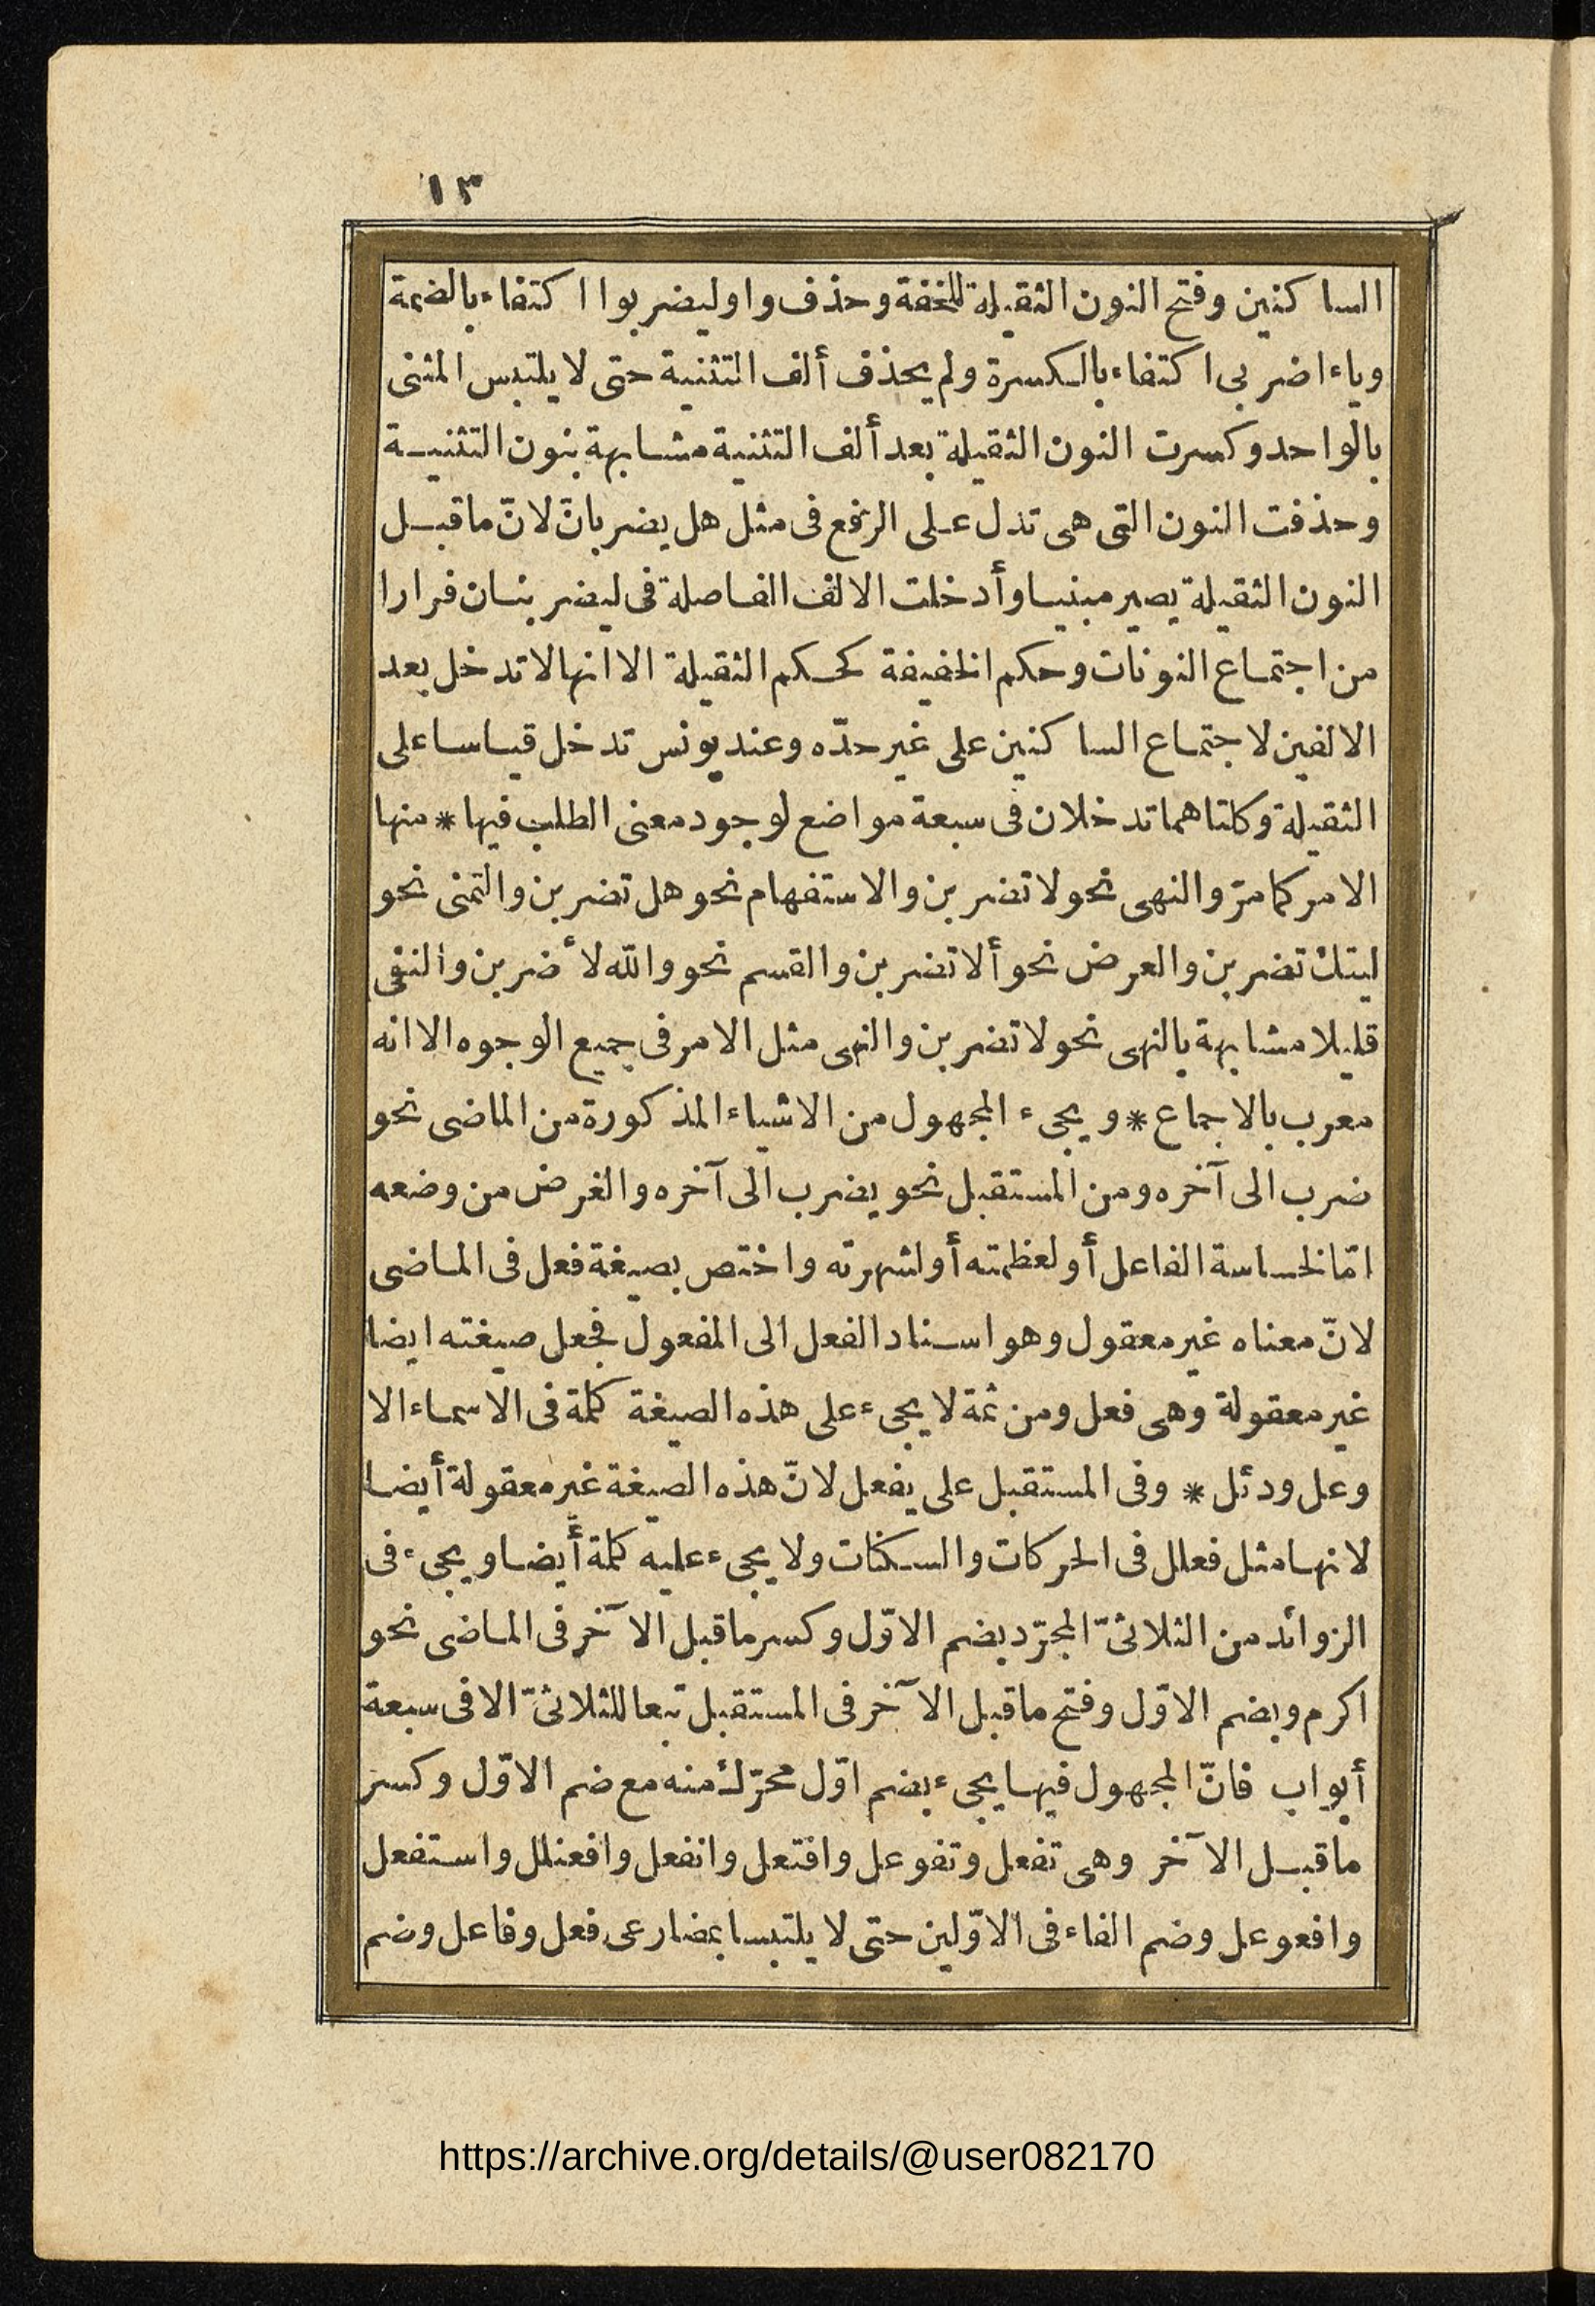 ١٣
الساكنين وفتح النون الثقيلة للخفة وحذف واو ليضربوا اكتفاء بالضمة
وياء اضربى اكتفاء بالكسرة ولم يحذف ألف التثنية حتى لا يلتبس المثنى
بالواحد وكسرت النون الثقيلة بعد ألف التثنية مشابهة بنون التثنية
وحذفت النون التى هى تدل على الرفع فى مثل هل يضربانّ لانّ ما قبل
النون الثقيلة يصير مبنيا وأدخلت الالف الفاصلة فى ليضربنان فرارا
من اجتماع النونات وحكم الخفيفة كحكم الثقيلة الا انها لا تدخل بعد
الالفين لاجتماع الساكنين على غير حدّه وعند يونس تدخل قياسا على
الثقيلة وكلتاهما تدخلان فى سبعة مواضع لوجود معنى الطلب فيها * منها
الامر كما مرّ والنهى نحو لا تضربن والاستفهام نحو هل تضربن والتمنى نحو
ليتك تضربن والعرض نحو ألا تضربن والقسم نحو والله لأضربن والنفى
قليلا مشابهة بالنهى نحو لا تضربن والنهى مثل الامر فى جميع الوجوه الا انه
معرب بالاجماع * ويجىء المجهول من الاشياء المذكورة من الماضى نحو
ضرب الى آخره ومن المستقبل نحو يضرب الى آخره والغرض من وضعه
امّا لخساسة الفاعل أو لعظمته أو لشهرته واختص بصيغة فعل فى الماضى
لانّ معناه غير معقول وهو اسناد الفعل الى المفعول فجعل صيغته ايضا
غير معقولة وهى فعل ومن ثمة لا يجىء على هذه الصيغة كلمة فى الاسماء الا
وعل ودئل * وفى المستقبل على يفعل لانّ هذه الصيغة غير معقولة أيضا
لانها مثل فعلل فى الحركات والسكنات ولا يجىء عليه كلمة أيضا ويجىء فى
الزوائد من الثلاثىّ المجرّد بضم الاوّل وكسر ما قبل الآخر فى الماضى نحو
اكرم وبضم الاوّل وفتح ما قبل الآخر فى المستقبل تبعا للثلاثىّ الا فى سبعة
أبواب فانّ المجهول فيها يجىء بضم اوّل محرّك منه مع ضم الاوّل وكسر
ما قبل الآخر وهى تفعل وتفوعل وافتعل وانفعل وافعنلل واستفعل
وافعوعل وضم الفاء فى الاوّلين حتى لا يلتبسا بمضارعى فعل وفاعل وضم
https://archive.org/details/@user082170